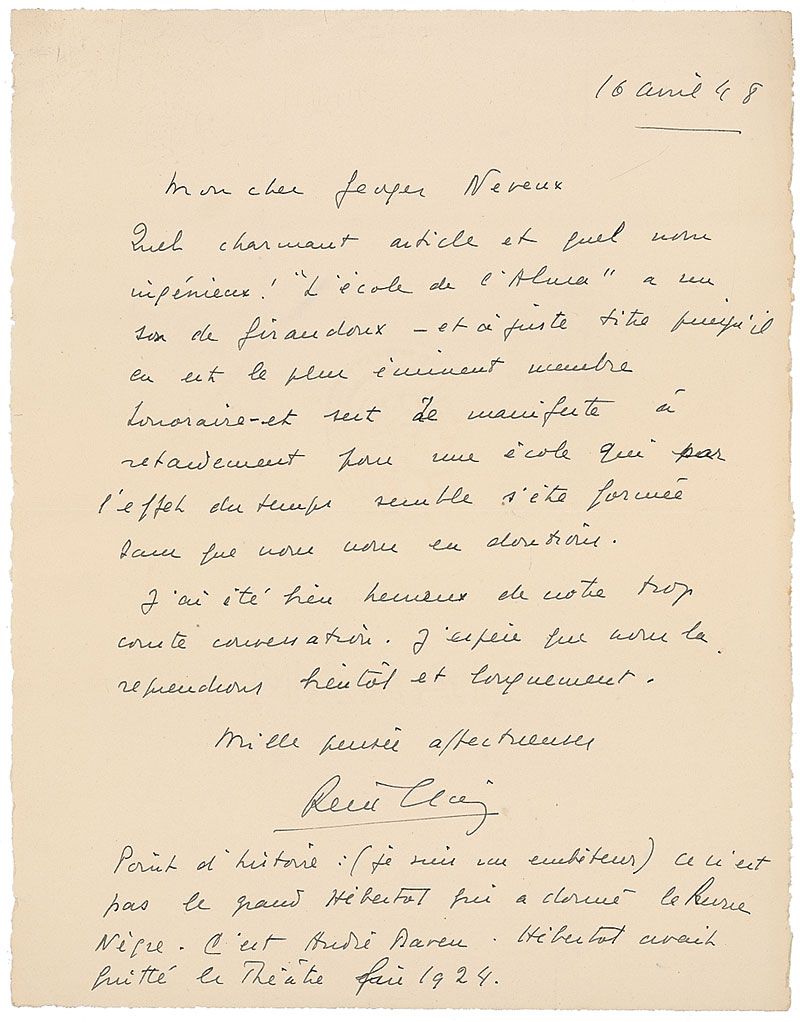 16 avril 48
Mon cher Georges Neveux
Quel charmant article et quel nom
ingénieux! "L'école de l'Alma" a un
son de Giraudoux – et à juste titre puisqu'il
en est le plus éminent membre
honoraire – et sert de manifeste à
retardement pour une école qui par
l'effet du temps semble s'être formée
sans que nous nous en doutions.
J'ai été bien heureux de notre trop
courte conversation. J'espère que nous la
reprendrons bientôt et longuement.
Mille pensées affectueuses
René Clair
Point d'histoire : (je suis un embêteur) ce n'est
pas le grand Hébertot qui a donné la Revue
Nègre. C'est André Daven. Hébertot avait
quitté le Théâtre fin 1924.